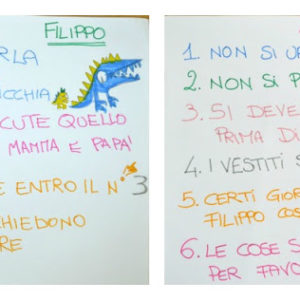 FILIPPO
RLA
ICCHIA
CUTE QUELLO
MAMMA E PAPA!
E ENTRO IL N° 3
HIEDONO
RE
1. NON SI U
2. NON SI P
3. SI DEVE
PRIMA DI
4. I VESTITI S
5. CERTI GIOR
FILIPPO COS
6. LE COSE S
PER FAVO